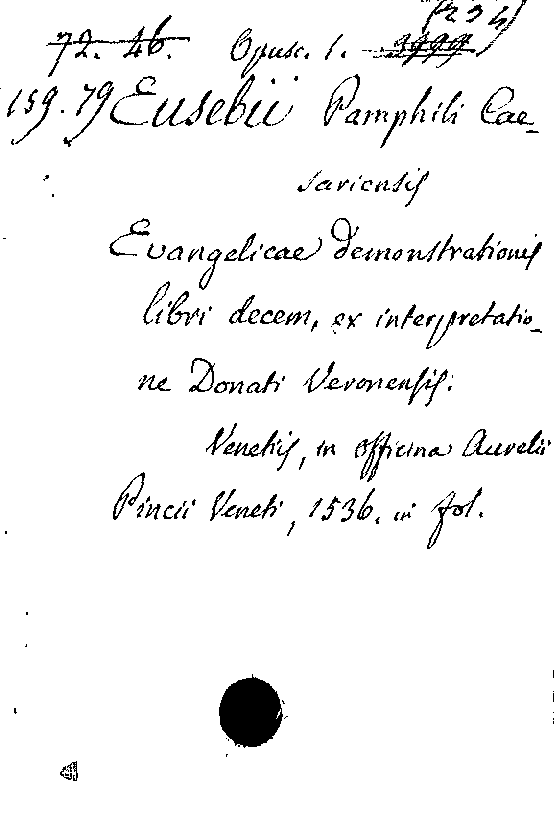 72. 46. Opusc. 1.
159.79 Eusebii Pamphili Cae-
sariensis
Evangelicae demonstrationis
libri decem, ex interpretatio-
ne Donati Veronensis.
Venetiis, in officina Aurelii
Pincii Veneti, 1536. in fol.